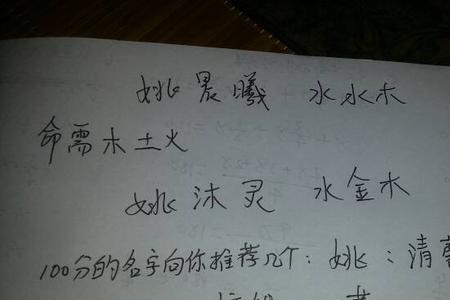 姚晨曦 水水木
命需木土火
姚沐灵 水金木
100分的名字向你推荐几个：姚：清